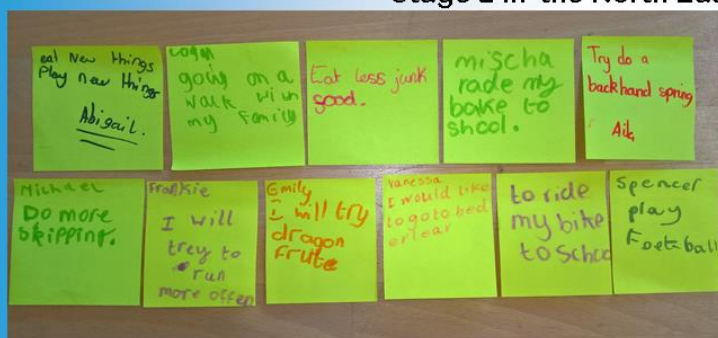 eat New things
Play new things
Abigail.
Logan
going on a
walk with
my family
Eat less junk
good.
mischa
rade my
bake to
shool.
Try do a
backhand spring
Michael
Do more
skipping.
Frankie
I will
trey to
run
more offen
Emily
I will try
dragon
frute
Vanessa
I would like
to go to bed
erlear
to ride
my bike
to schoo
Spencer
play
Football